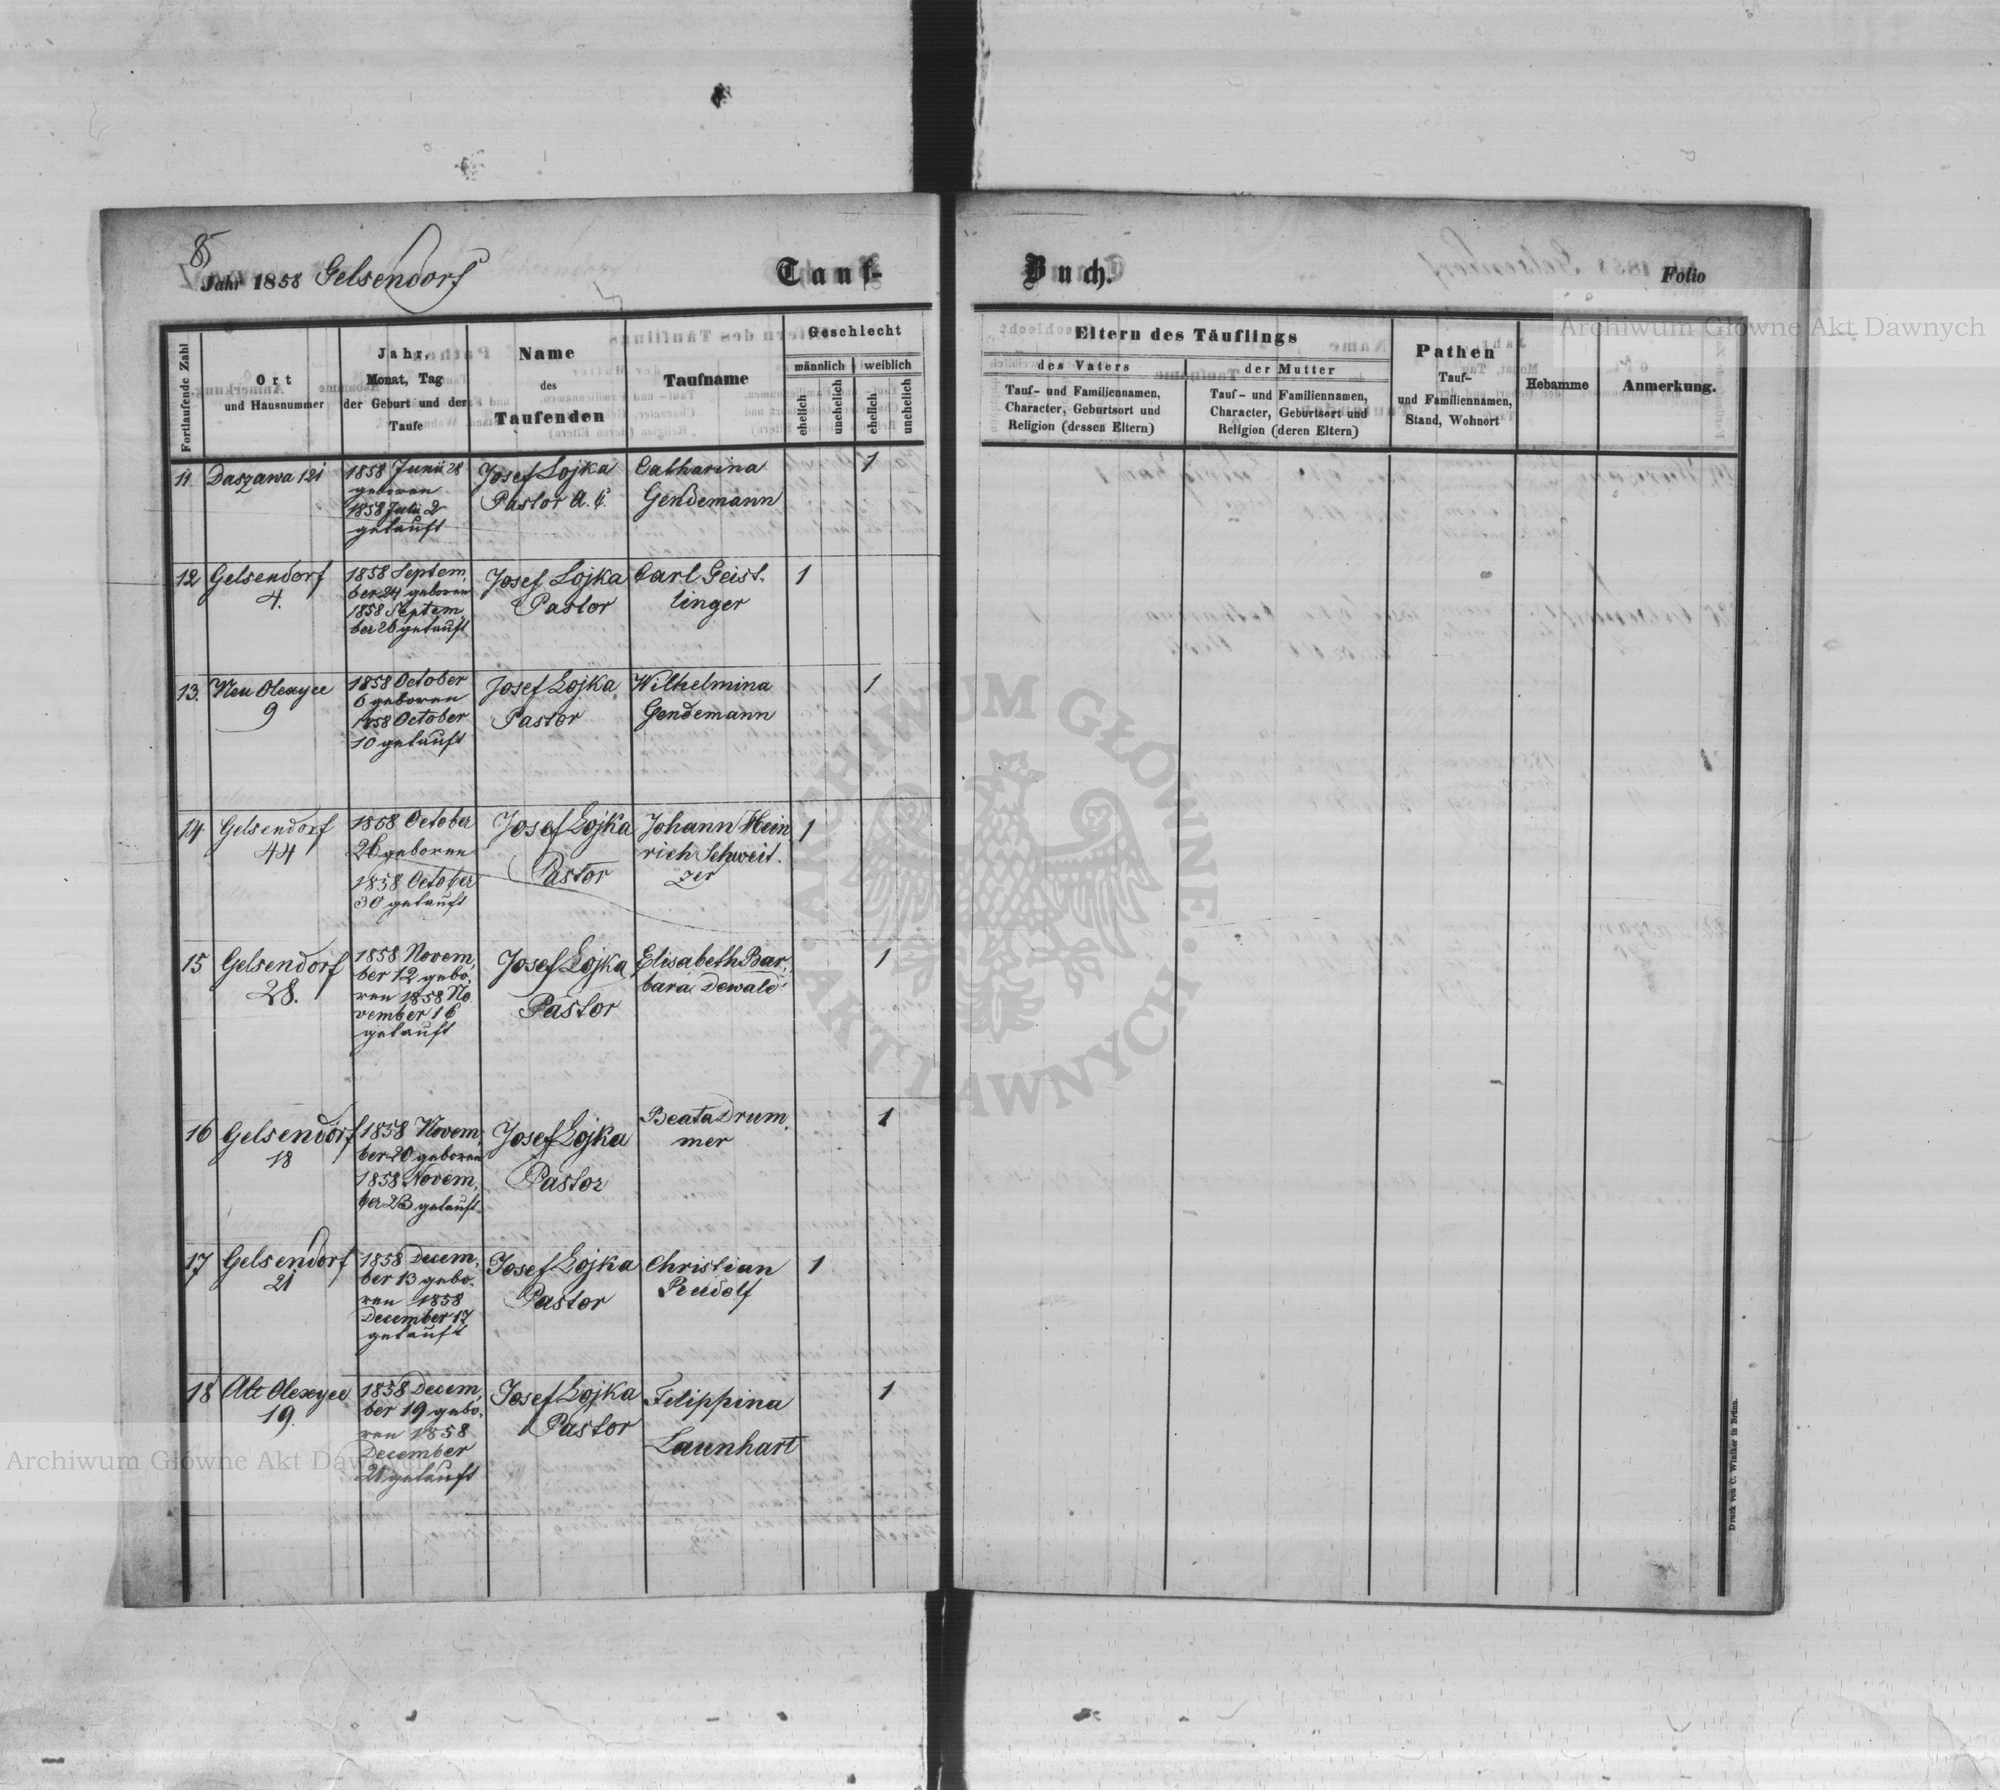 8
Jahr 1858 Gelsendorf
Tauf-
Buch.
Folio
Fortlaufende Zahl
Ort
und Hausnummer
Jahr,
Monat, Tag
der Geburt und der
Taufe
Name
des
Taufenden
Taufname
Geschlecht
männlich
weiblich
ehelich
unehelich
ehelich
unehelich
Eltern des Täuflings
des Vaters
Tauf- und Familiennamen,
Character, Geburtsort und
Religion (dessen Eltern)
der Mutter
Tauf- und Familiennamen,
Character, Geburtsort und
Religion (deren Eltern)
Pathen
Tauf-
und Familiennamen,
Stand, Wohnort
Hebamme
Anmerkung.
11
Daszawa 121
1858 Junii 28
geboren
1858 Julii 2
getauft
Josef Lojka
Pastor A. C.
Catharina
Gendemann
1
12
Gelsendorf
4.
1858 Septem,
ber 24 geboren
1858 Septem
ber 26 getauft
Josef Lojka
Pastor
Carl Geist.
linger
1
13.
Neu Olexyce
9
1858 October
6 geboren
1858 October
10 getauft
Josef Lojka
Pastor
Wilhelmina
Gendemann
1
14.
Gelsendorf
44
1858 October
26 geboren
1858 October
30 getauft
Josef Lojka
Pastor
Johann Hein
rich Schweit.
zer
1
15
Gelsendorf
28.
1858 Novem,
ber 12 gebo,
ren 1858 No
vember 16
getauft
Josef Lojka
Pastor
Elisabeth Bar,
bara Dewald
1
16
Gelsendorf
18
1858 Novem,
ber 20 geboren
1858 Novem,
ber 23 getauft
Josef Lojka
Pastor
Beata Drum,
mer
1
17
Gelsendorf
21
1858 Decem,
ber 13 gebo.
ren 1858
December 17
getauft
Josef Lojka
Pastor
Christian
Rudolf
1
18
Alt Olexyce
19.
1858 Decem,
ber 19 gebo,
ren 1858
December
21 getauft
Josef Lojka
Pastor
Filippina
Launhart
1
Druck von C. Winiker in Brünn.
Archiwum Główne Akt Dawnych
Archiwum Główne Akt Dawnych
ARCHIWUM GŁÓWNE · AKT DAWNYCH ·